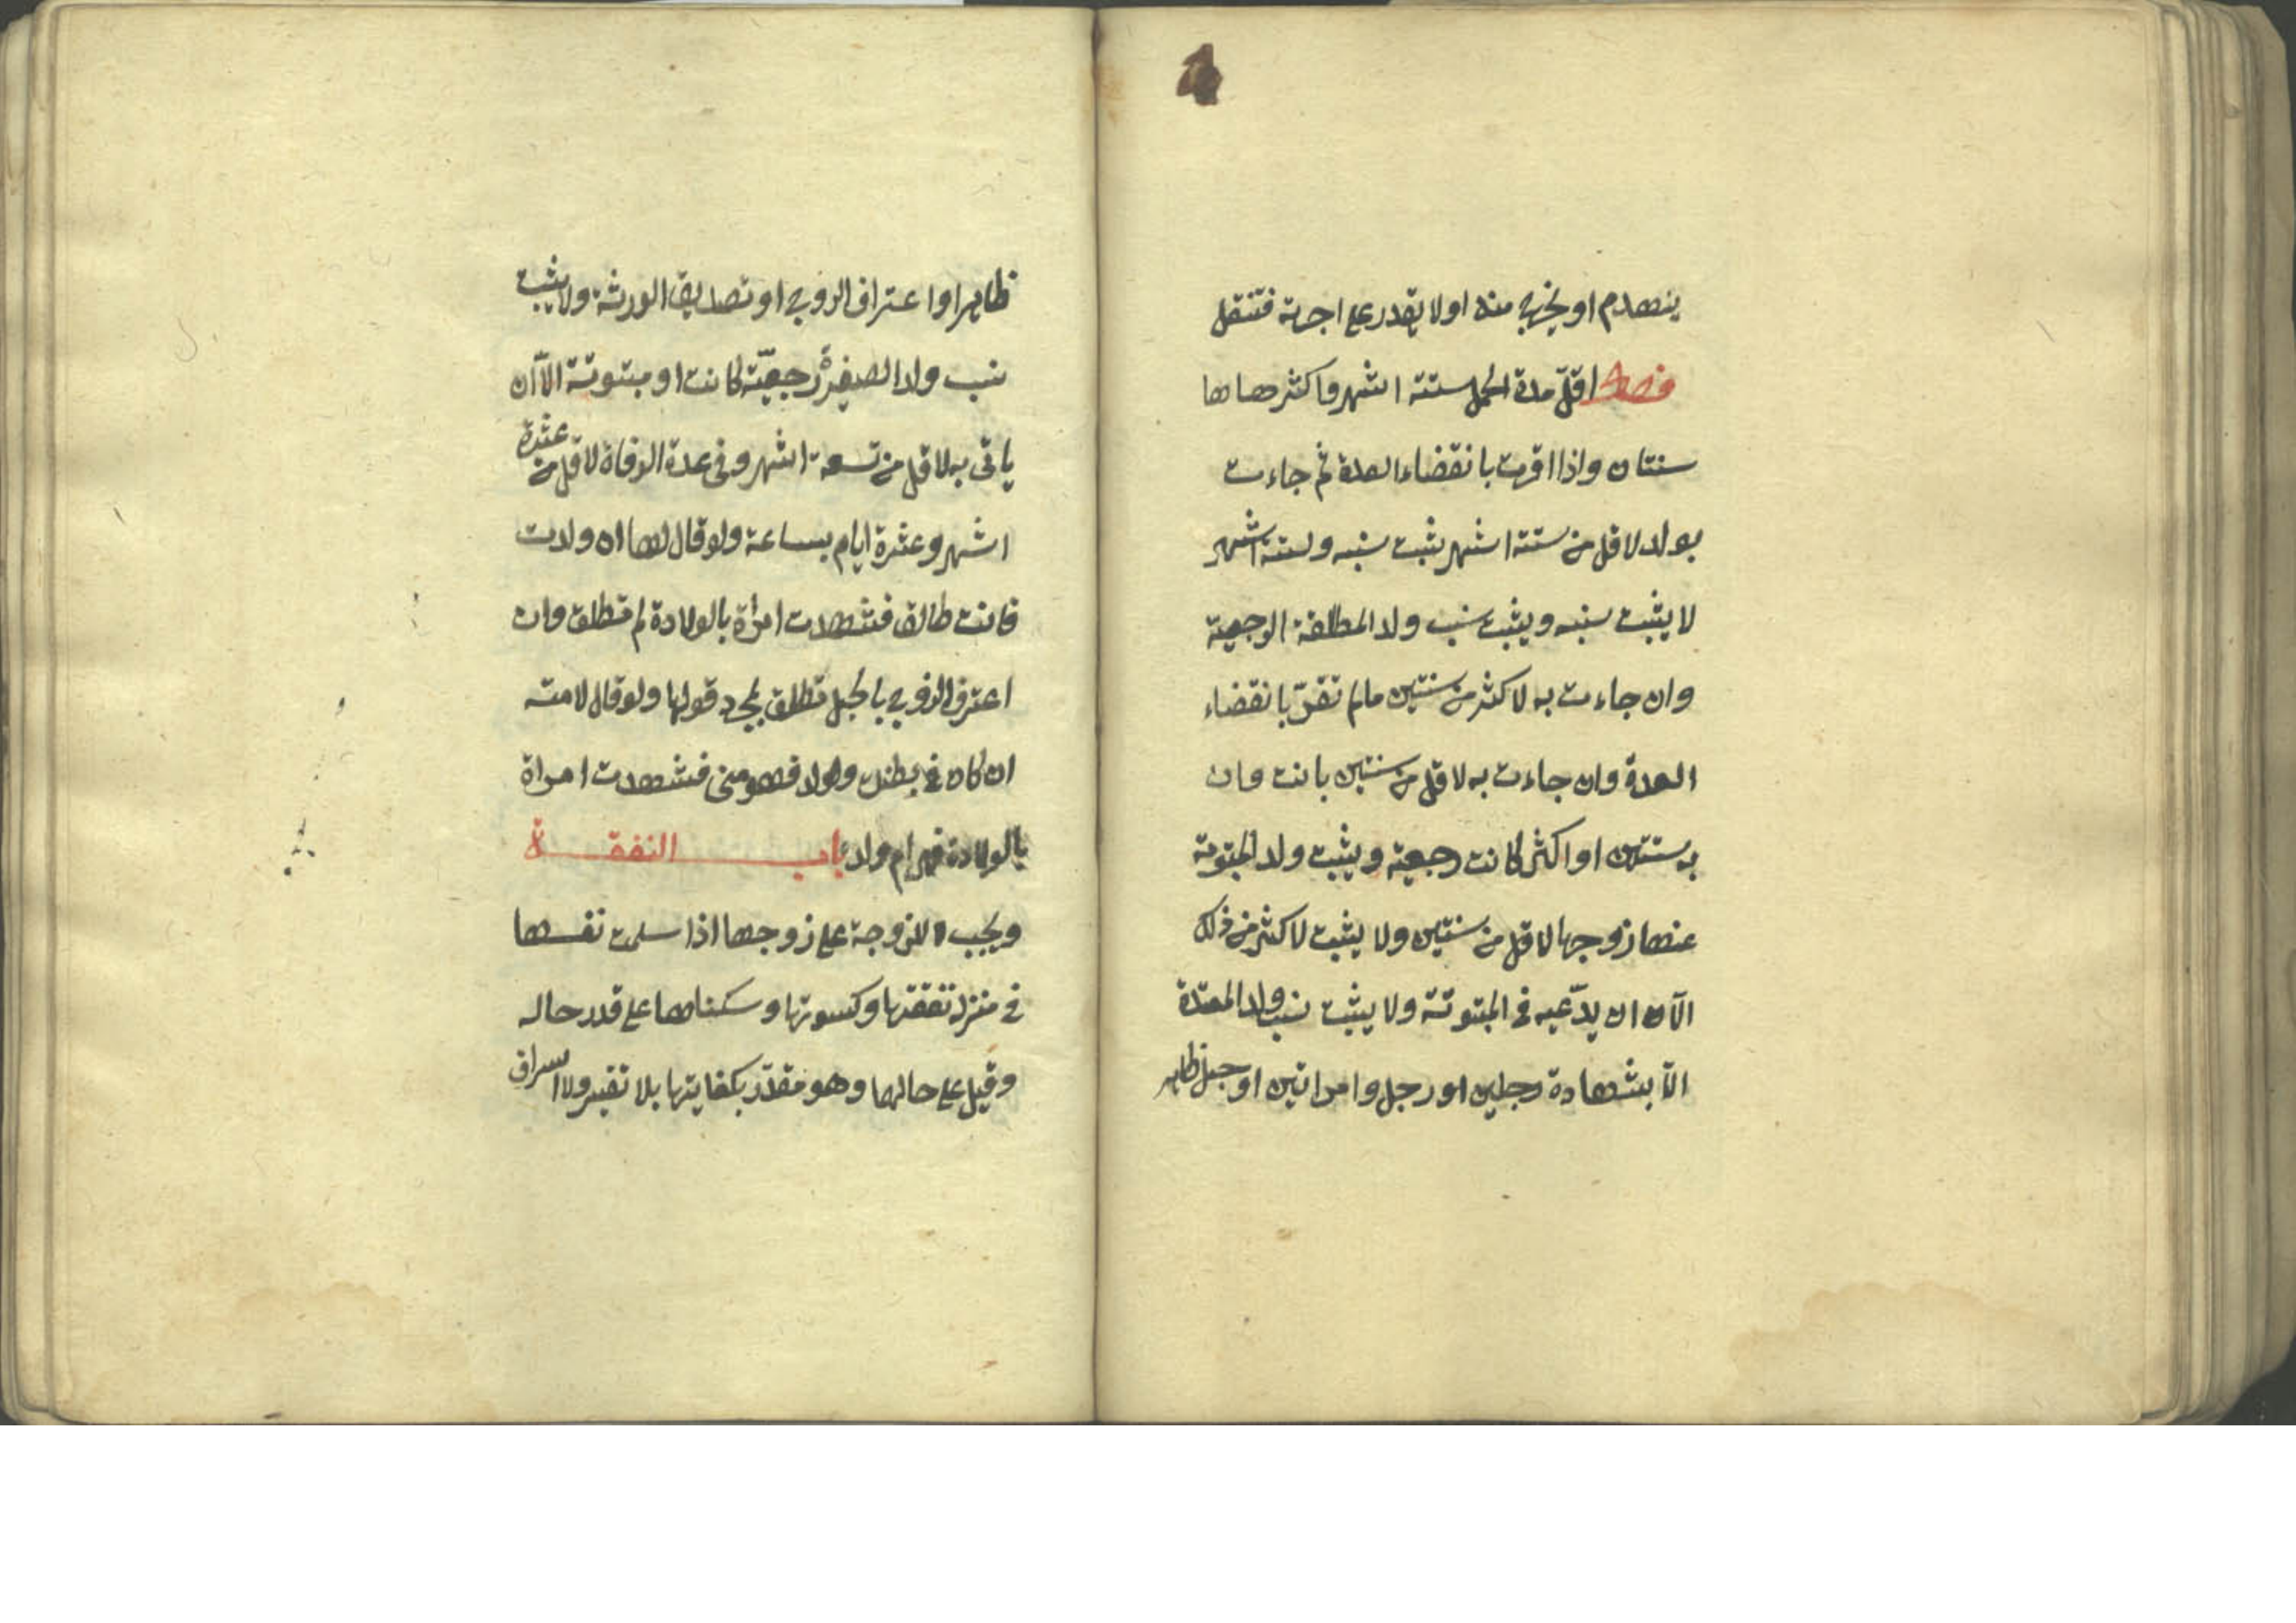 ينهدم او يخرج منه او لا يقدر على اجرته فتنتقل
فصل اقلّ مدة الحمل ستة اشهر واكثرها
سنتان واذا اقرت بانقضاء العدة ثم جاءت
بولد لاقل من ستة اشهر يثبت نسبه ولستة اشهر
لا يثبت نسبه ويثبت نسب ولد المطلقة الرجعية
وان جاءت به لاكثر من سنتين مالم تقرّ بانقضاء
العدة وان جاءت به لاقل من سنتين بانت وان
به سنتين او اكثر كانت رجعية ويثبت ولد المبتوتة
عنها زوجها لاقل من سنتين ولا يثبت لاكثر من ذلك
الّا ان يدّعيه فى المبتوتة ولا يثبت نسب ولد المعتدة
الّا بشهادة رجلين او رجل وامراتين او حبل ظاهر
ظاهرا او اعتراف الزوج او تصديق الورثة ولا يثبت
نسب ولد الصغيرة رجعيّة كانت او مبتوتة الّا ان
ياتى به لاقل من تسعة اشهر وفى عدة الوفاة لاقل من عشرة
اشهر وعشرة ايام بساعة ولو قال لها ان ولدت
فانت طالق فشهدت امراة بالولادة لم تطلق وان
اعترف الزوج بالحبل تطلق بمجرد قولها ولو قال لامته
ان كان فى بطنك ولد فهو منى فشهدت امراة
بالولادة فهى ام ولده باب النفقة
ويجب للزوجة على زوجها اذا سلمت نفسها
فى منزله نفقتها وكسوتها وسكناها على قدر حاله
وقيل على حالهما وهو مقدّر بكفايتها بلا تقتير ولا اسراف